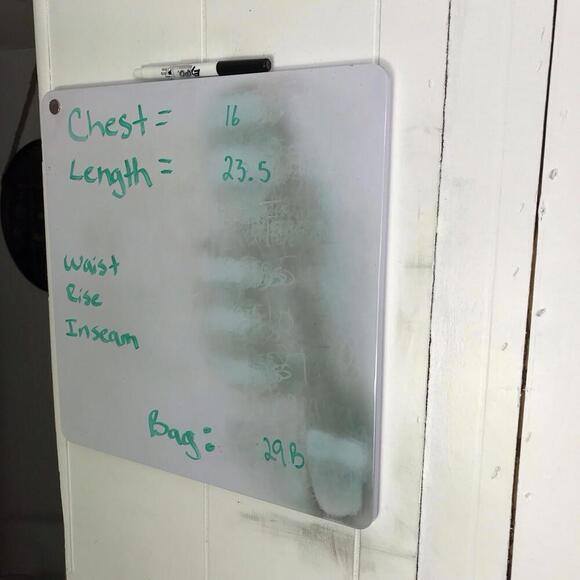 EXPO
Chest = 16
Length = 23.5
Waist
Rise
Inseam
Bag: 29B